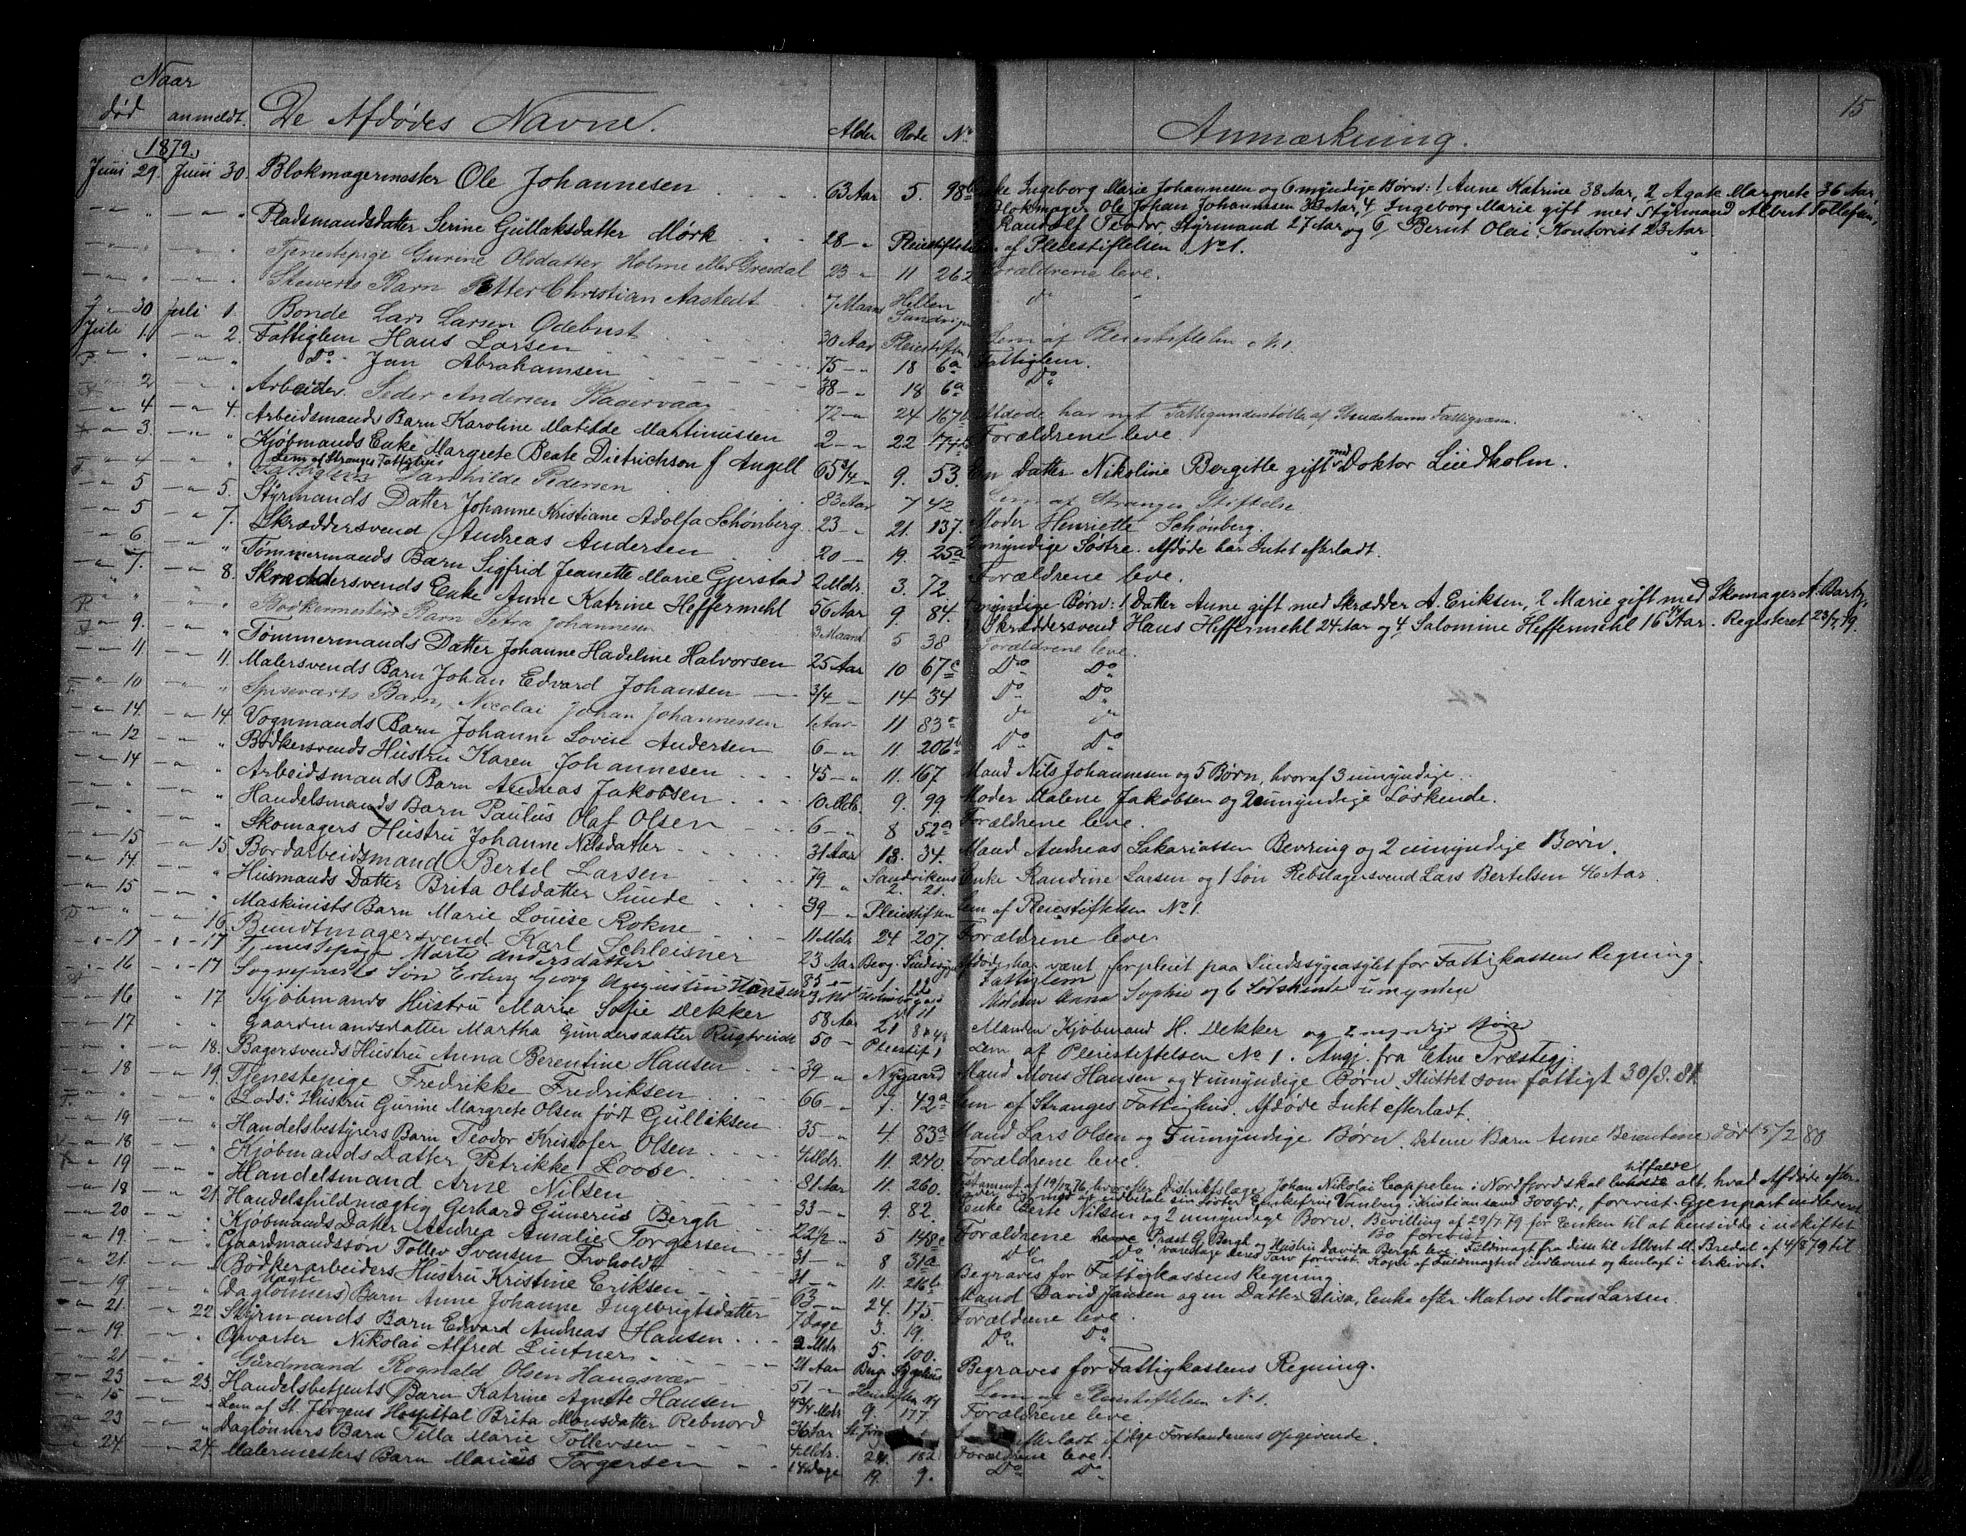 15
Naar
død anmeldt. De Afdødes Navne. Alder Rode No Anmærkning.
1879.
Juni 29. Juni 30. Blokmagermester Ole Johannesen 63 Aar 5. 98b Enke Ingeborg Marie Johannesen og 6 myndige Børn: 1 Anne Katrine 38 Aar, 2 Agate Margrete 36 Aar,
Blokmager Ole Johan Johannesen 33 Aar, 4 Ingeborg Marie gift med Styrmand Albert Tollefsen,
Randolf Teodor, Styrmand 27 Aar og 6, Bernt Olai, Kontorist 23 Aar
Pladsmandsdatter Serine Gullaksdatter Mørk 28 - " Pleiestiftelsen Lem af Pleiestiftelsen No 1.
Tjenestepige Gurine Olsdatter Holme eller Grendal 23 " 11 262 Forældrene leve.
Stewerts Barn Petter Christian Aastedt 7 Maan Hellen Sandvigen Do
" 30 Juli 1. Bonde Lars Larsen Odebust 30 Aar Pleiestiften Lem af Pleiestiftelsen No 1.
Juli 1. - " 2. Fattiglem Hans Larsen 75 - " 18 6a Fattiglem.
Do Jan Abrahamsen 38 - " 18 6a Do
" 2 Arbeider Peder Andersen 72 - " 24 167 Afdøde har nyt Fattigunderstøttelse af Fattigvæsen.
- " 4 - " 4. Arbeidsmands Barn Karoline Matilde Martinussen 2 - " 22 174b Forældrene leve.
- " 3. Kjøbmands Enke Margrete Beate Dietrichson f. Angell 65 3/4 9. 53. En Datter Nikoline Bergitte gift med Doktor Lindholm.
- " 4 Lem af Stranges Fattighus
Fattiglem Pedersen 83 Aar 7 42 Lem af Stranges Stiftelse
- " 5 - " 5. Styrmands Datter Johanne Kristiane Adolfa Schønberg. 23 - " 21. 137. Moder Henriette Schønberg.
- " 5 - " 7. Skræddersvend Andreas Andersen 20 - " 19. 25a 2 myndige Søstre. Afdøde har Intet efterladt.
- " 6 " Tømmermands Barn Sigfrid Jeanette Marie Gjerstad 2 Mdr. 3. 72. Forældrene leve.
- " 7. 8. Skræddersvends Enke Anne Katrine Heffermehl 56 Aar 9. 84. 4 myndige Børn: 1 Datter Anne gift med Skrædder A. Eriksen, 2 Marie gift med Skomager A. Barth,
Skræddersvend Hans Heffermehl 24 Aar og 4 Salomine Heffermehl 16 Aar. Registeret 23/7 79.
Bødkermesters Barn Petra Johannesen 3 Maand 5 38 Forældrene leve.
" 9. Tømmermands Datter Johanne Hadeline Halvorsen 25 Aar 10 67c Do Do
- " 11 11. Malersvends Barn Johan Edvard Johansen 3/4 - " 14 34 Do Do
- " 10 Spiseværts Barn, Nicolai Johan Johannessen 1 Aar 11 83c Do Do
- " 14. - " 14 Vognmands Barn Johanne Lovise Andersen 6 - " 11 206b Do Do
- " 12 Bødkersvends Hustru Karen Johannesen 45 - " 11. 167 Mand Nils Johannesen og 5 Børn, hvoraf 3 umyndige.
- " 14 Arbeidsmands Barn Andreas Jakobsen 10 Mdr. 9. 99 Moder Malene Jakobsen og 2 umyndige Søskende.
Handelsmands Barn Paulus Olaf Olsen 6 - " 8 52a Forældrene leve.
Skomagers Hustru Johanne Nilsdatter 31 Aar 13. 34. Mand Andreas Sakariassen Bevring og 2 umyndige Børn.
- " 15 15. Bordarbeidsmand Bertel Larsen 79 - " Sandvikens 2. 21. Enke Randine Larsen og 1 Søn Rebslagersvend Lars Bertelsen 46 Aar.
- " 14. Husmands Datter Brita Olsdatter Sunde 39 - " Pleiestiften Lem af Pleiestiftelsen No 1.
- " 15 Maskinists Barn Marie Louise Rokne 11 Mdr. 24 207. Forældrene leve.
16. Bundtmagersvend Karl Schleisner 23 Aar Berg. Sindssyge Afdøde har været forpleiet paa Sindssygeasylet for Fattigkassens Regning.
" 17 " 17 Tjenestepige Marte Andersdatter 85 Fattiglem
" 16 " 17 Søn Erling Georg Augustin Hansen 3 Md Moderen Anna Sophie og 6 Sødskende umyndige
" 16 " 17 Kjøbmands Hustru Marie Sofie Dekker 58 Aar 21 Manden Kjøbmand H. Dekker og 2 myndige Børn
" 17 Gaardmandsdatter Martha Gundersdatter Rugtveidt 50 - Pleiestif. 1 Lem af Pleiestiftelsen No 1. Angj. fra Etne Præstegj.
18. Bagersvends Hustru Anna Berentine Hansen 39 " Nygaard Mand Mons Hansen og 4 umyndige Børn. Sluttet som fattigt 30/8. 81
- " 18 19. Tjenestepige Fredrikke Fredriksen 66 - " 7. 42a Lem af Stranges Fattighus. Afdøde Intet efterladt.
Lods: Hustru Gurine Margrete Olsen født Gulliksen 35 - " 4. 83a Mand Lars Olsen og 7 umyndige Børn. Det ene Barn Anne Berentine død 5/2 80
- " 19 Handelsbestyrers Barn Teodor Kristofer Olsen 4 Mdr. 11. 240. Forældrene leve.
- " 18 Kjøbmands Datter Petrikke Loose 81 Aar 11. 260. Testament af 19/12 76, hvorefter Distriktslæge Johan Nikolai Cappelen i Nordfjord skal tilfalde alt, hvad Afdøde efter-
lader sig mod at indbetale sin Søster Enkefrue Vanberg i Kristiansand 300 Spd., forevist. Gjenpart indleveret
- " 19 Handelsmand Arne Nilsen 33 - " 9. 82. Enke Berte Nilsen og 2 umyndige Børn. Bevilling af 29/7 79 for Enken til at hensidde i uskiftet
Bo forevist
- " 18 - " 21. Handelsfuldmægtig Gerhard Gunerus Bergh 22 1/2 - " 5 148c Forældrene Præst G. Bergh og Hustru Davida Bergh leve. Fuldmagt fra disse til Albert M. Bredal af 4/8 79 til
varetage deres Tarv forevist. Kopi af Fuldmagten indleveret og henlagt i Arkivet.
- " 20 Kjøbmands Datter Andrea Amalie Torgersen 31 - " 8 31a Do Do
- " 19. Gaardmandssøn Tollev Svensen Froholdt 31 - " 11. 216b Begraves for Fattigkassens Regning.
- " 21. Bødkerarbeiders Hustru Kristine Eriksen 63 - " 24. 175. Mand David Jansen og en Datter Elisa, Enke efter Matros Mons Larsen.
- " 19 Daglønners Uægte Barn Anne Johanne Ingebrigtsdatter 7 Dage 3. 19. Forældrene leve.
- " 21. 22. Styrmands Barn Edvard Andreas Hansen 2 Mdr. 5. 100. Do Do
- " 19. Opvarter Nikolai Alfred Lintner 21 Aar Brg. Sygehus Begraves for Fattigkassens Regning.
- " 21 Gaardmand Rognald Olsen Haugsvær 51 - " Pleiestiften No 1 Lem af Pleiestiftelsen No 1.
- " 23 - " 23. Handelsbetjents Barn Katrine Agnete Hansen 4 3/4 Mdr. 9. 177. Forældrene leve
- " 15 Lem af St. Jørgens Hospital Brita Monsdatter Rebnord 36 Aar St. Jørgens efterladt ifølge Forstanderens Opgivende.
- " 23 Daglønners Barn Tilla Marie Tollevsen 4 Mdr. 24. 182 Forældrene leve.
- " 24. - " 24. Malermesters Barn Marius Torgersen 14 Dage 19. 9. Do Do